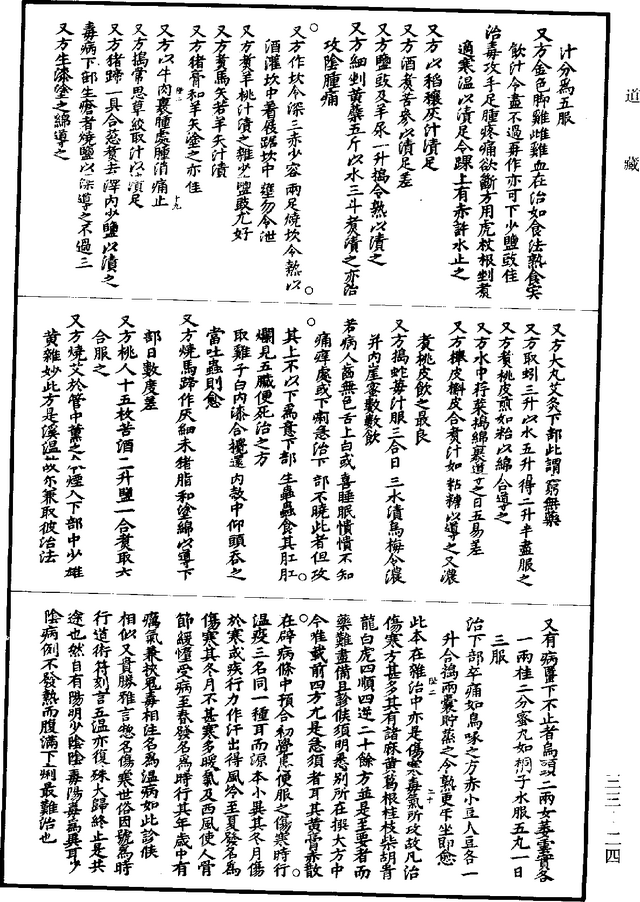 道藏
汁分為五服
又方金色腳雞雌雞血在治如食法熟食宍
飲汁令盡不過再作亦可下少鹽豉佳
治毒攻手足腫疼痛欲斷方用虎杖根剉煮
適寒溫以漬足令踝上有赤許水止之
又方以稻穰灰汁漬足
又方酒煮苦參以漬足差
又方鹽豉及羊尿一升搗令熟以漬之
又方細剉黃蘗五斤以水三斗煮漬之亦治
攻陰腫痛
又方作坎令深三赤少容兩足燒坎令熱以
酒灌坎中著屐踞坎中壅勿令泄
又方煮羊桃汁漬之雜少鹽豉尤好
又方煮馬矢若羊矢汁漬
又方猪膏和羊矢塗之亦佳
又方以牛肉裹腫處腫消痛止
又方搗常思草絞取汁以漬足
又方猪蹄一具合葱煮去滓内少鹽以漬之
毒病下部生瘡者燒鹽以深導之不過三
又方生漆塗之綿導之
又方大丸艾灸下部此謂窮無藥
又方取蚓三升以水五升得二升半盡服之
又方煮桃皮煎如粘以綿合導之
又方水中荇菜搗綿裹導之日五易差
又方櫸皮槲皮合煮汁如粘糖以導之又濃
煮桃皮飲之最良
又方搗蛇莓汁服三合日三水漬烏梅令濃
并内崖蜜數數飲
若病人齒無色舌上白或喜睡眠憒憒不知
痛痒處或下痢急治下部不曉此者但攻
其上不以下為意下部生蟲蟲食其肛肛
爛見五臟便死治之方
取雞子白内漆合攪還内殼中仰頭吞之
當吐蟲則愈
又方燒馬蹄作灰細末猪脂和塗綿以導下
部日數度差
又方桃人十五枚苦酒二升鹽一合煮取六
合服之
又方燒艾於管中薰之令煙入下部中少雄
黃雜妙此方是溪溫故尔兼取彼治法
又有病䘌下不止者烏頭二兩女萎雲實各
一兩桂二分蜜丸如桐子水服五丸一日
三服
治下部卒痛如鳥啄之方赤小豆大豆各一
升合搗兩囊貯蒸之令熟更午坐即愈
此本在雜治中亦是傷寒毒氣所攻故凡治
傷寒方甚多其有諸麻黃葛根桂枝柴胡青
龍白虎四順四逆二十餘方並是至要者而
藥難盡備且診候須明悉別所在撰大方中
今唯載前四方尤是急須者耳其黃膏赤散
在辟病條中預合初覺患便服之傷寒時行
溫疫三名同一種耳而源本小異其冬月傷
於寒或疾行力作汗出得風冷至夏發名為
傷寒其冬月不甚寒多暖氣及西風使人骨
節緩憧受病至春發名為時行其年歲中有
癘氣兼挾鬼毒相注名為溫病如此診候
相似又貴勝雅言惣名傷寒世俗因號為時
行道術符刻言五溫亦復殊大歸終止是共
途也然自有陽明少陰陰毒陽毒為異耳少
陰病例不發熱而腹滿下痢最難治也
三三·二四